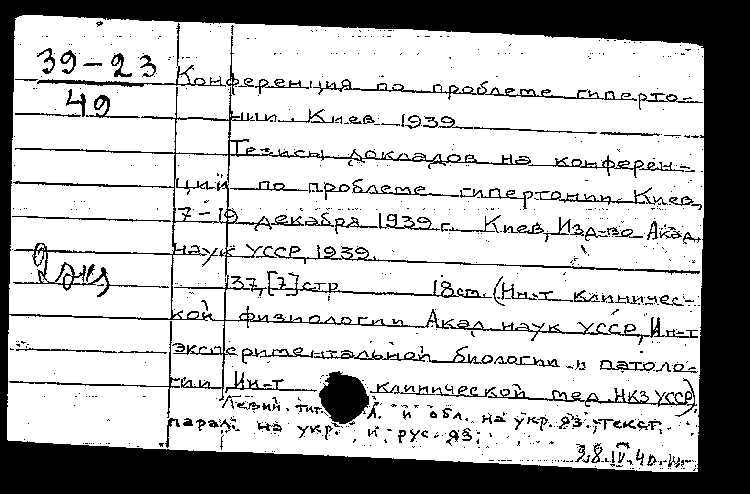 39-23
49
Конференция по проблеме гиперто-
нии. Киев 1939
Тезисы докладов на конферен-
ции по проблеме гипертонии. Киев,
17-19 декабря 1939 г. Киев, Изд-во Акад.
наук УССР, 1939.
2 экз
137,[7]стр 18см. (Ин-т клиничес-
кой физиологии Акад наук УССР, Ин-т
экспериментальной биологии и патоло-
гии, Ин-т клинической мед. НКЗ УССР)
Левый тит. л. и обл. на укр. яз.; текст
парал. на укр. и рус. яз.
IV.40